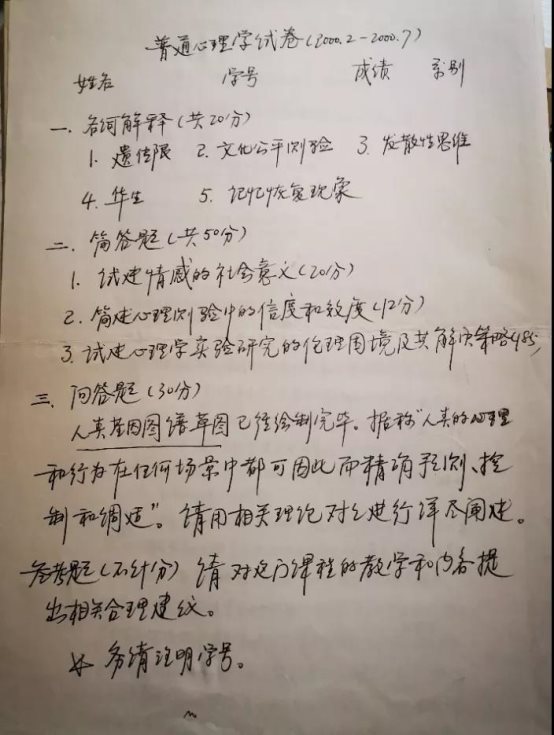 普通心理学试卷(2000.2-2000.7)
姓名 学号 成绩 系别
一. 名词解释(共20分)
1. 遗传限 2. 文化公平测验 3. 发散性思维
4. 华生 5. 记忆恢复现象
二. 简答题(共50分)
1. 试述情感的社会意义(20分)
2. 简述心理测验中的信度和效度(12分)
3. 试述心理学实验研究的伦理困境及其解决策略(18分)
三. 问答题(30分)
人类基因图谱草图已经绘制完毕。据称"人类的心理
和行为在任何场景中都可因此而精确预测、控
制和调适"。请用相关理论对之进行详尽阐述。
参考题(不计分) 请对这门课程的教学和内容提
出相关合理建议。
务请注明学号。